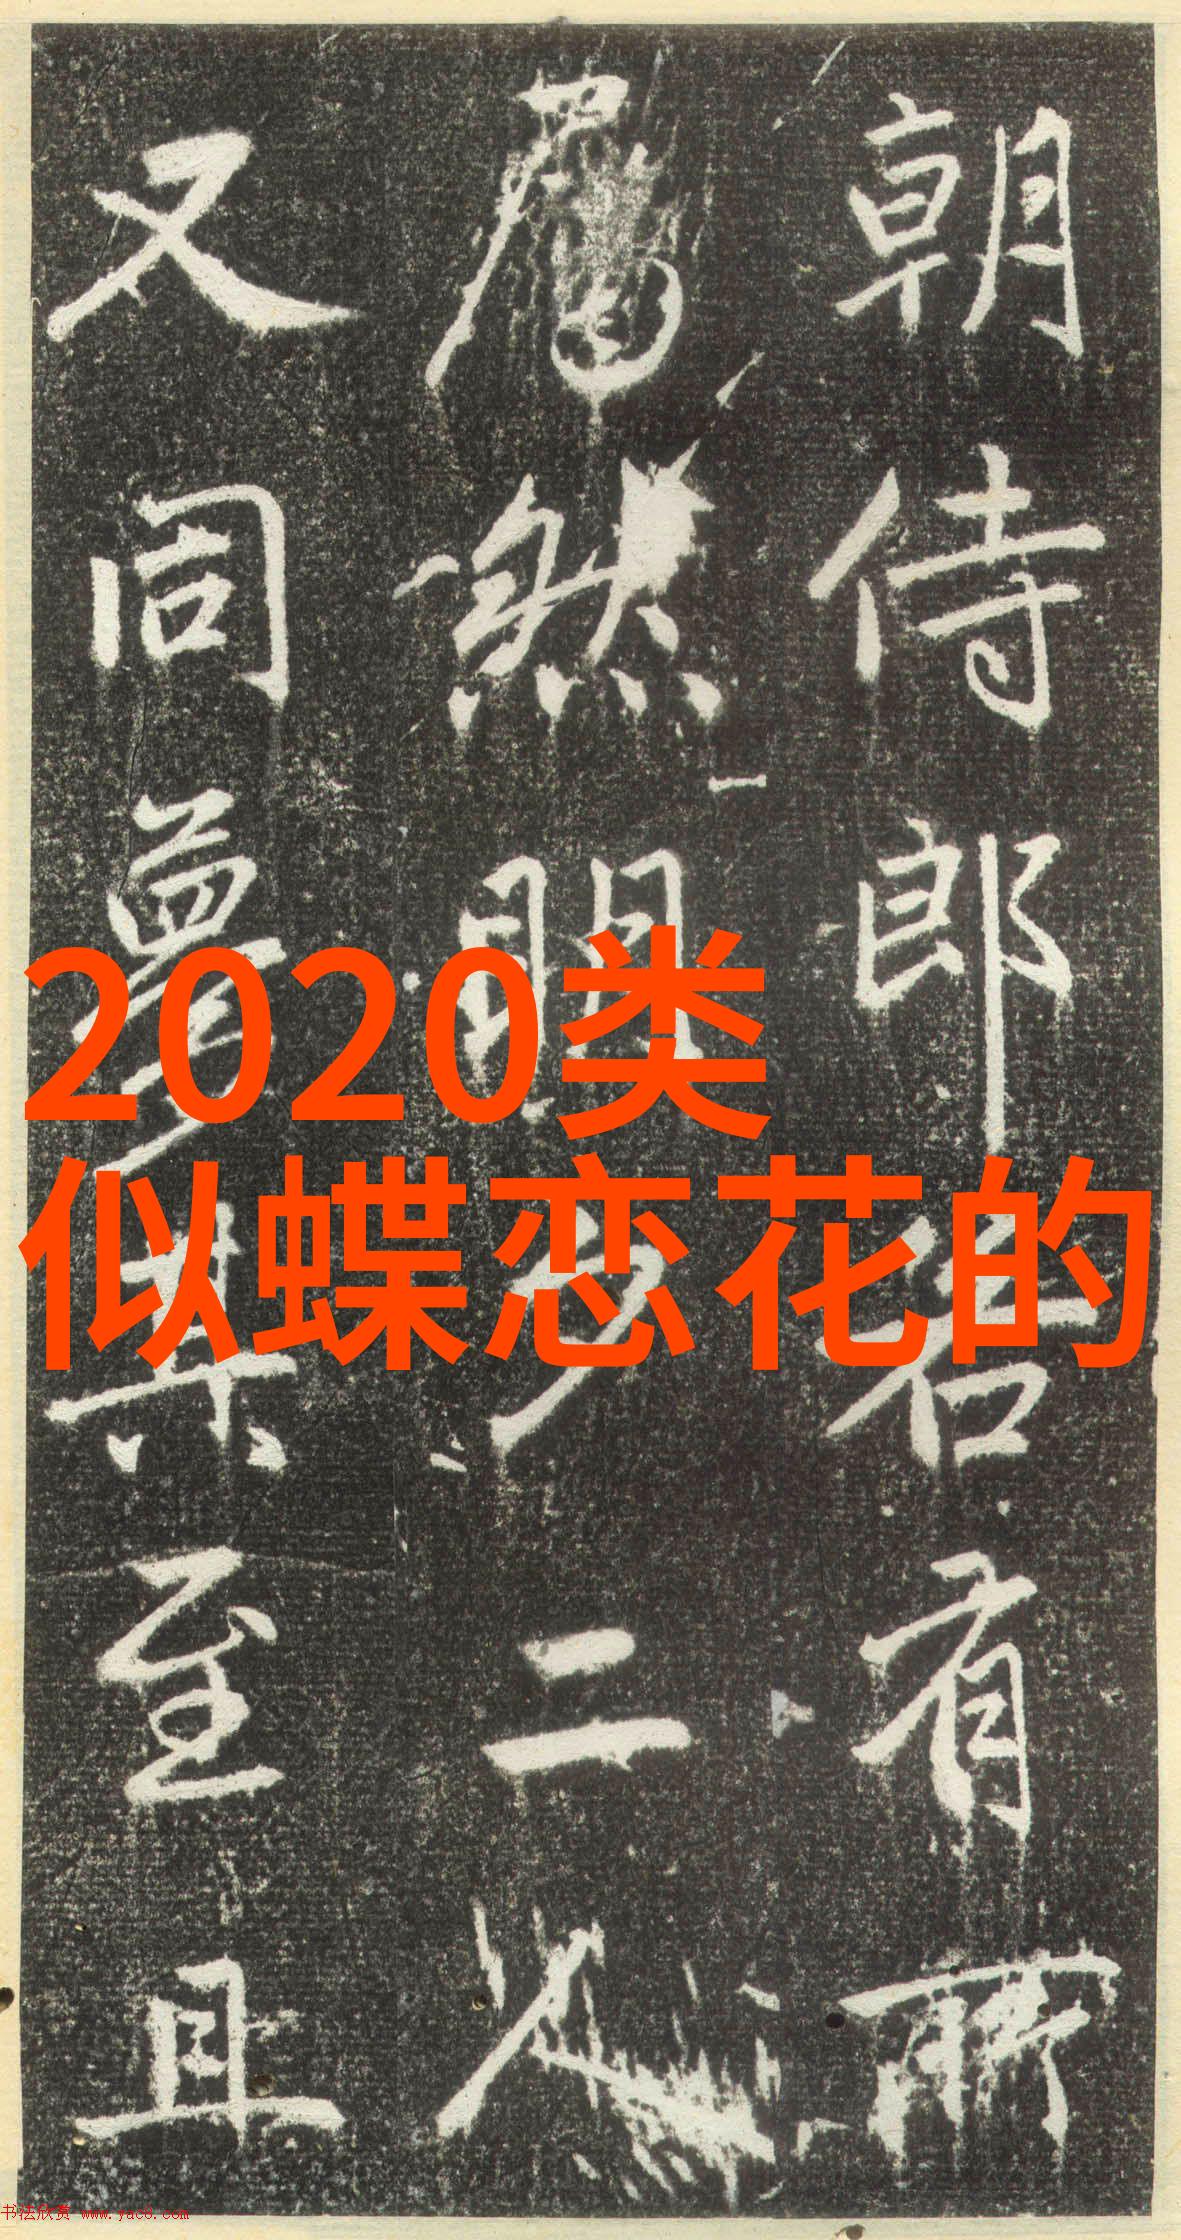 朝侍郎有所
然明二人
又同夢其至且
2020类
似蝶恋花的
书法欣赏 www.yac8.com